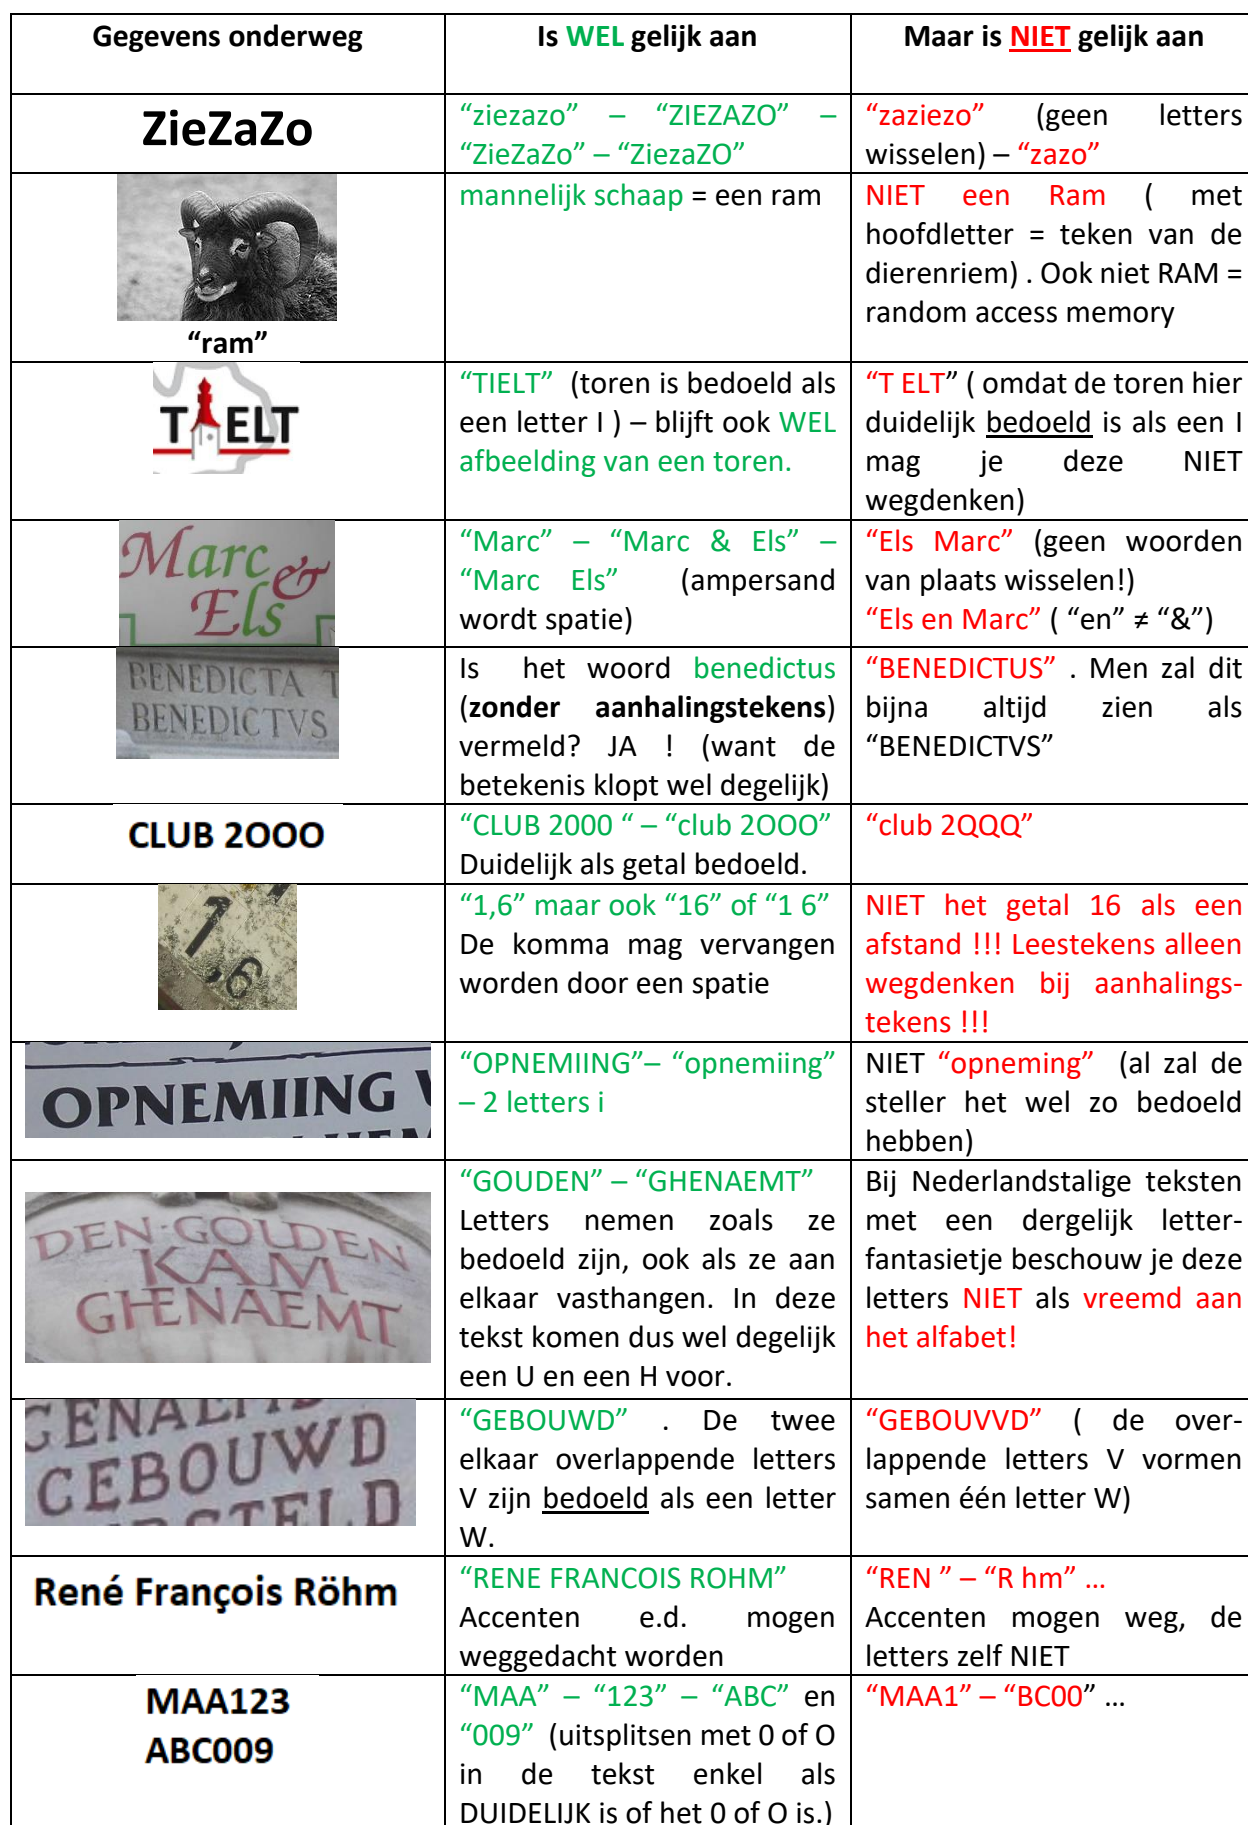 Gegevens onderweg
Is WEL gelijk aan
Maar is NIET gelijk aan
ZieZaZo
“ziezazo” – “ZIEZAZO” –
“ZieZaZo” – “ZiezaZO”
“zaziezo” (geen letters
wisselen) – “zazo”
“ram”
mannelijk schaap = een ram
NIET een Ram ( met
hoofdletter = teken van de
dierenriem) . Ook niet RAM =
random access memory
TIELT
“TIELT” (toren is bedoeld als
een letter I ) – blijft ook WEL
afbeelding van een toren.
“T ELT” ( omdat de toren hier
duidelijk bedoeld is als een I
mag je deze NIET
wegdenken)
Marc &
Els
“Marc” – “Marc & Els” –
“Marc Els” (ampersand
wordt spatie)
“Els Marc” (geen woorden
van plaats wisselen!)
“Els en Marc” ( “en” ≠ “&”)
BENEDICTA T
BENEDICTVS
Is het woord benedictus
(zonder aanhalingstekens)
vermeld? JA ! (want de
betekenis klopt wel degelijk)
“BENEDICTUS” . Men zal dit
bijna altijd zien als
“BENEDICTVS”
CLUB 2OOO
“CLUB 2000 “ – “club 2OOO”
Duidelijk als getal bedoeld.
“club 2QQQ”
1,6
“1,6” maar ook “16” of “1 6”
De komma mag vervangen
worden door een spatie
NIET het getal 16 als een
afstand !!! Leestekens alleen
wegdenken bij aanhalings-
tekens !!!
OPNEMIING
“OPNEMIING”– “opnemiing”
– 2 letters i
NIET “opneming” (al zal de
steller het wel zo bedoeld
hebben)
DEN·GOLDEN
KAM
GHENAEMT
“GOUDEN” – “GHENAEMT”
Letters nemen zoals ze
bedoeld zijn, ook als ze aan
elkaar vasthangen. In deze
tekst komen dus wel degelijk
een U en een H voor.
Bij Nederlandstalige teksten
met een dergelijk letter-
fantasietje beschouw je deze
letters NIET als vreemd aan
het alfabet!
GEBOUWD
“GEBOUWD” . De twee
elkaar overlappende letters
V zijn bedoeld als een letter
W.
“GEBOUVVD” ( de over-
lappende letters V vormen
samen één letter W)
René François Röhm
“RENE FRANCOIS ROHM”
Accenten e.d. mogen
weggedacht worden
“REN ” – “R hm” …
Accenten mogen weg, de
letters zelf NIET
MAA123
ABC009
“MAA” – “123” – “ABC” en
“009” (uitsplitsen met 0 of O
in de tekst enkel als
DUIDELIJK is of het 0 of O is.)
“MAA1” – “BC00” …